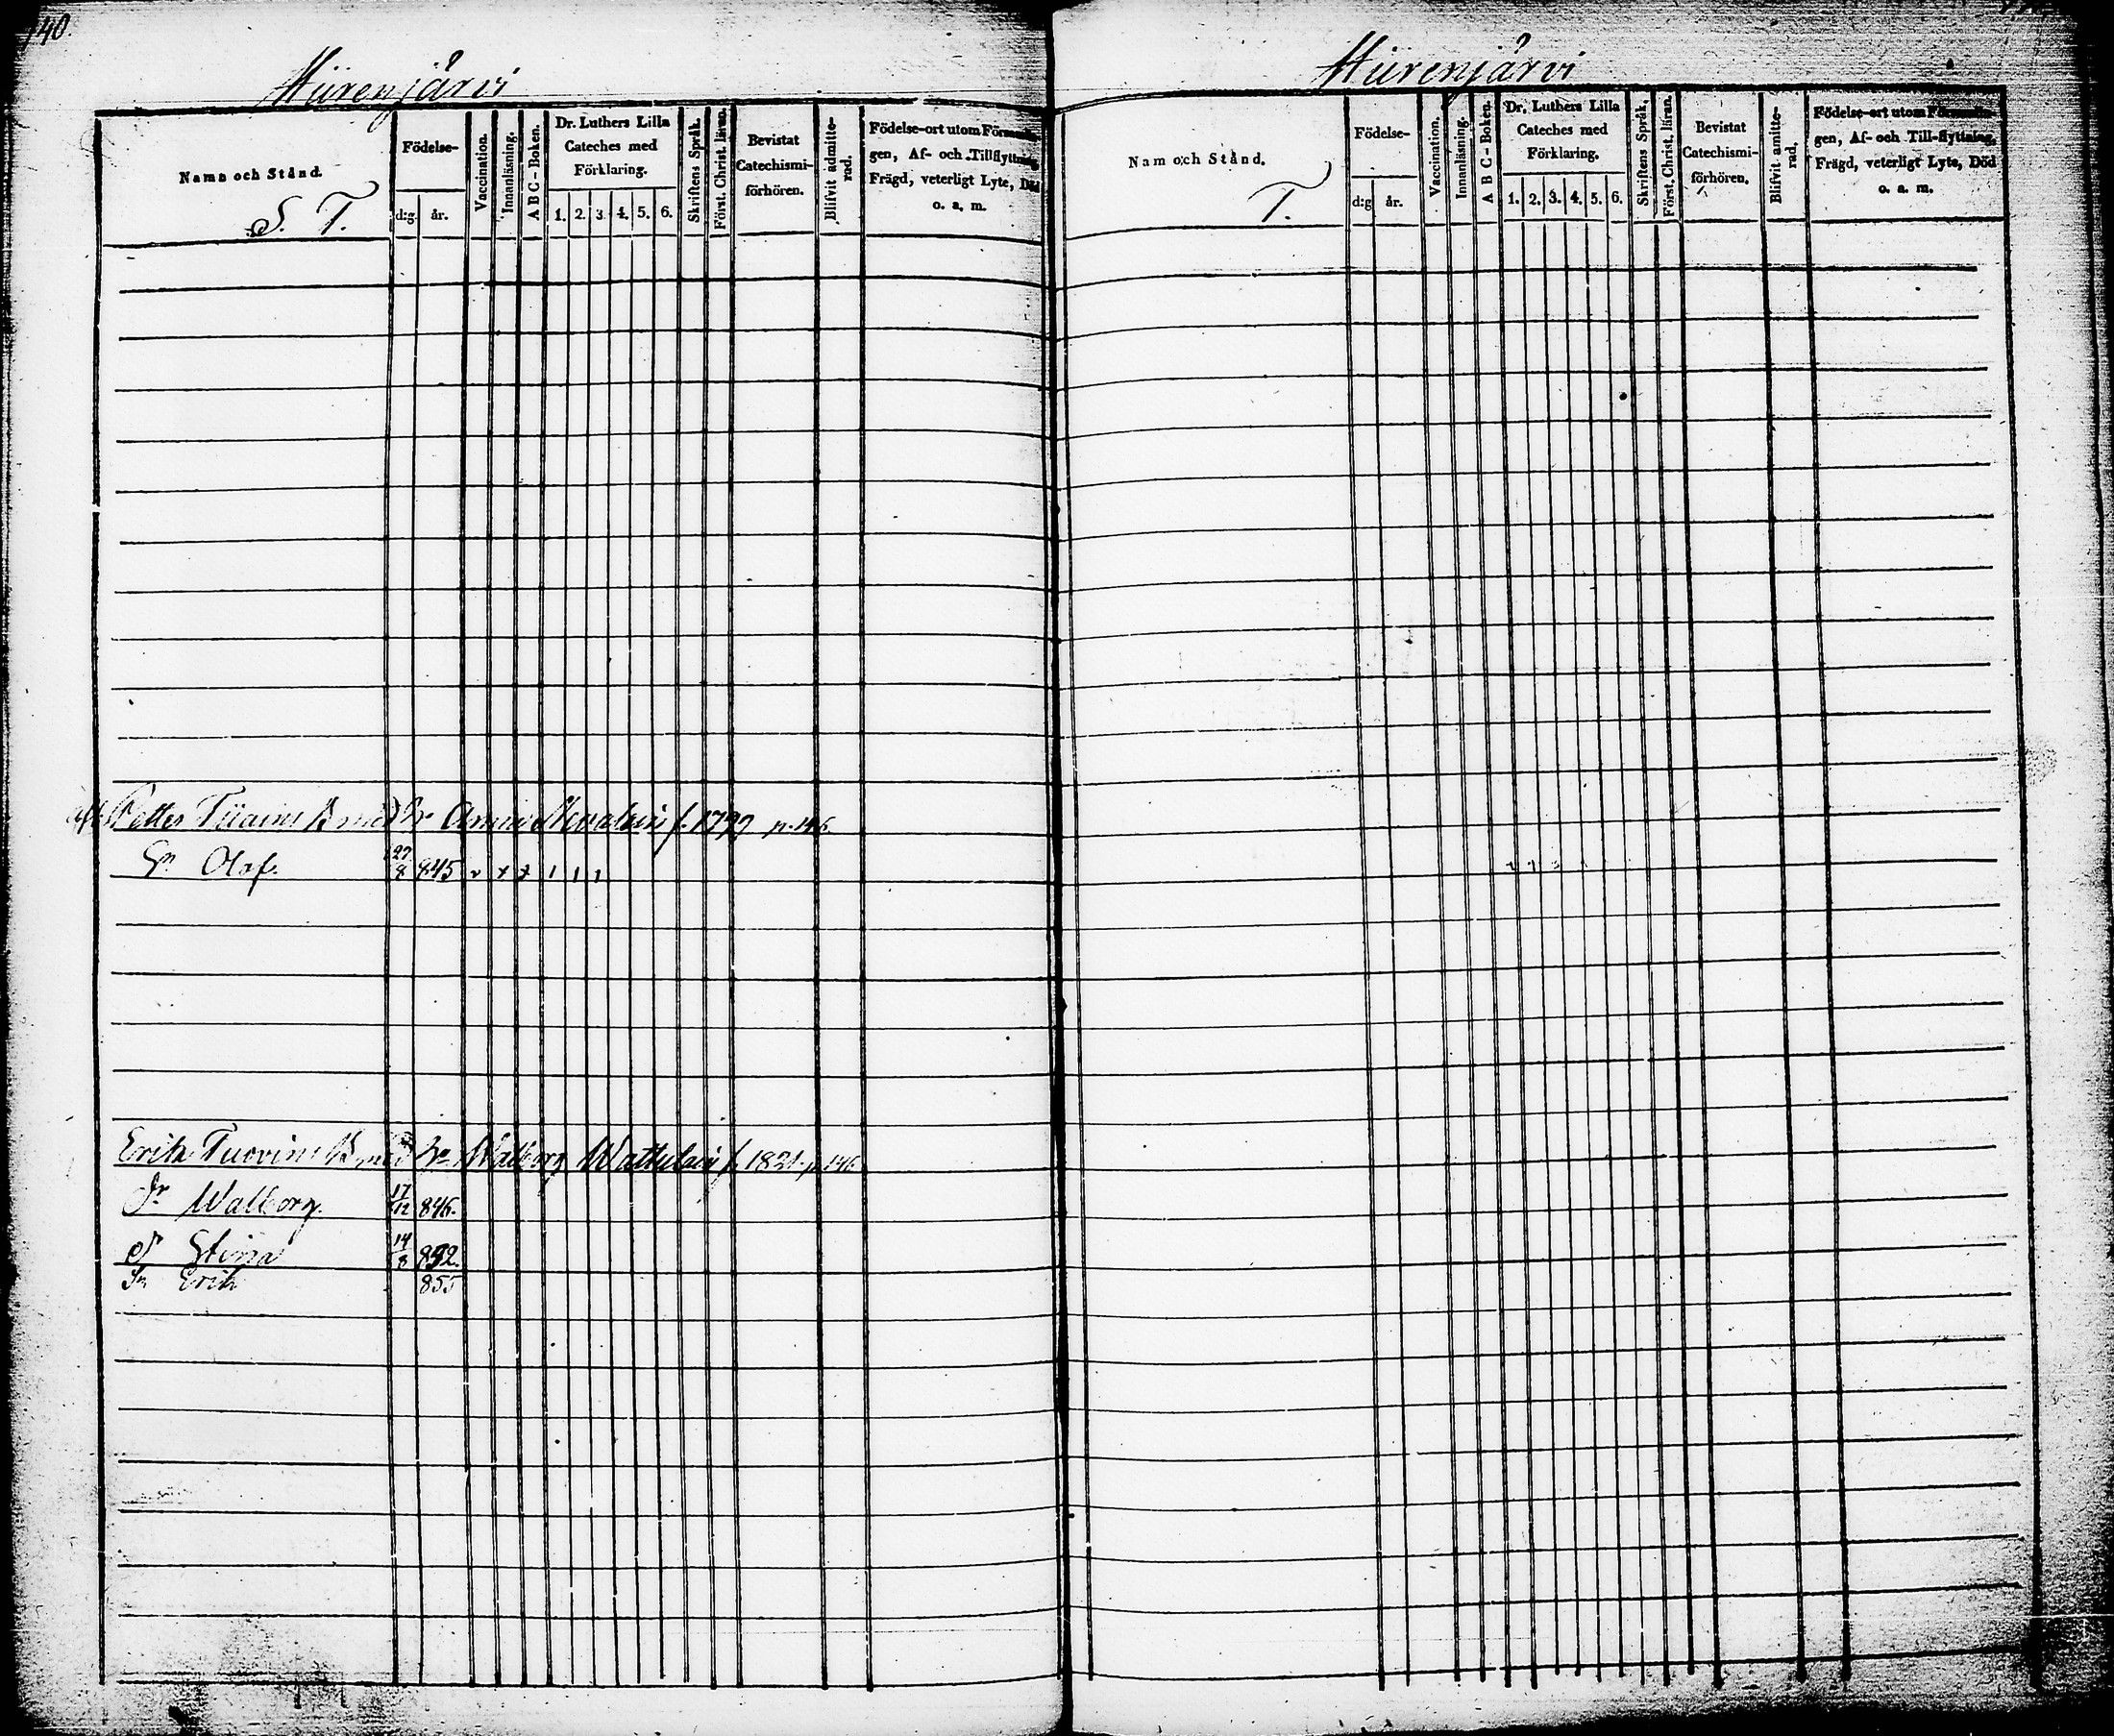 140.
Hiirenjärvi
Namn och Stånd.
S. T.
Födelse-
d:g år.
Vaccination.
Innanläsning.
A B C-Boken.
Dr. Luthers Lilla
Cateches med
Förklaring.
1. 2. 3. 4. 5. 6.
Skriftens Språk.
Först. Christ. läran.
Bevistat
Catechismi-
förhören.
Blifvit admitte-
rad.
Födelse-ort utom Församlin-
gen, Af- och Tillflyttning,
Frägd, veterligt Lyte, Död
o. a. m.
Petter Tiiainen B med Anna f. 1799 p. 146
Sn Olof. 27/8 845 v x x 1 1 1
Erik Tuovinen B med Hu Walborg f. 1821 p. 146
Dr Walborg. 17/12 846.
Dr Stina 14/8 852.
Sn Erik 855
Hiirenjärvi
Namn och Stånd.
T.
Födelse-
d:g år.
Vaccination.
Innanläsning.
A B C-Boken.
Dr. Luthers Lilla
Cateches med
Förklaring.
1. 2. 3. 4. 5. 6.
Skriftens Språk.
Först. Christ. läran.
Bevistat
Catechismi-
förhören.
Blifvit amitte-
rad.
Födelse-ort utom Församlin-
gen, Af- och Till-flyttning,
Frägd, veterligt Lyte, Död
o. a. m.